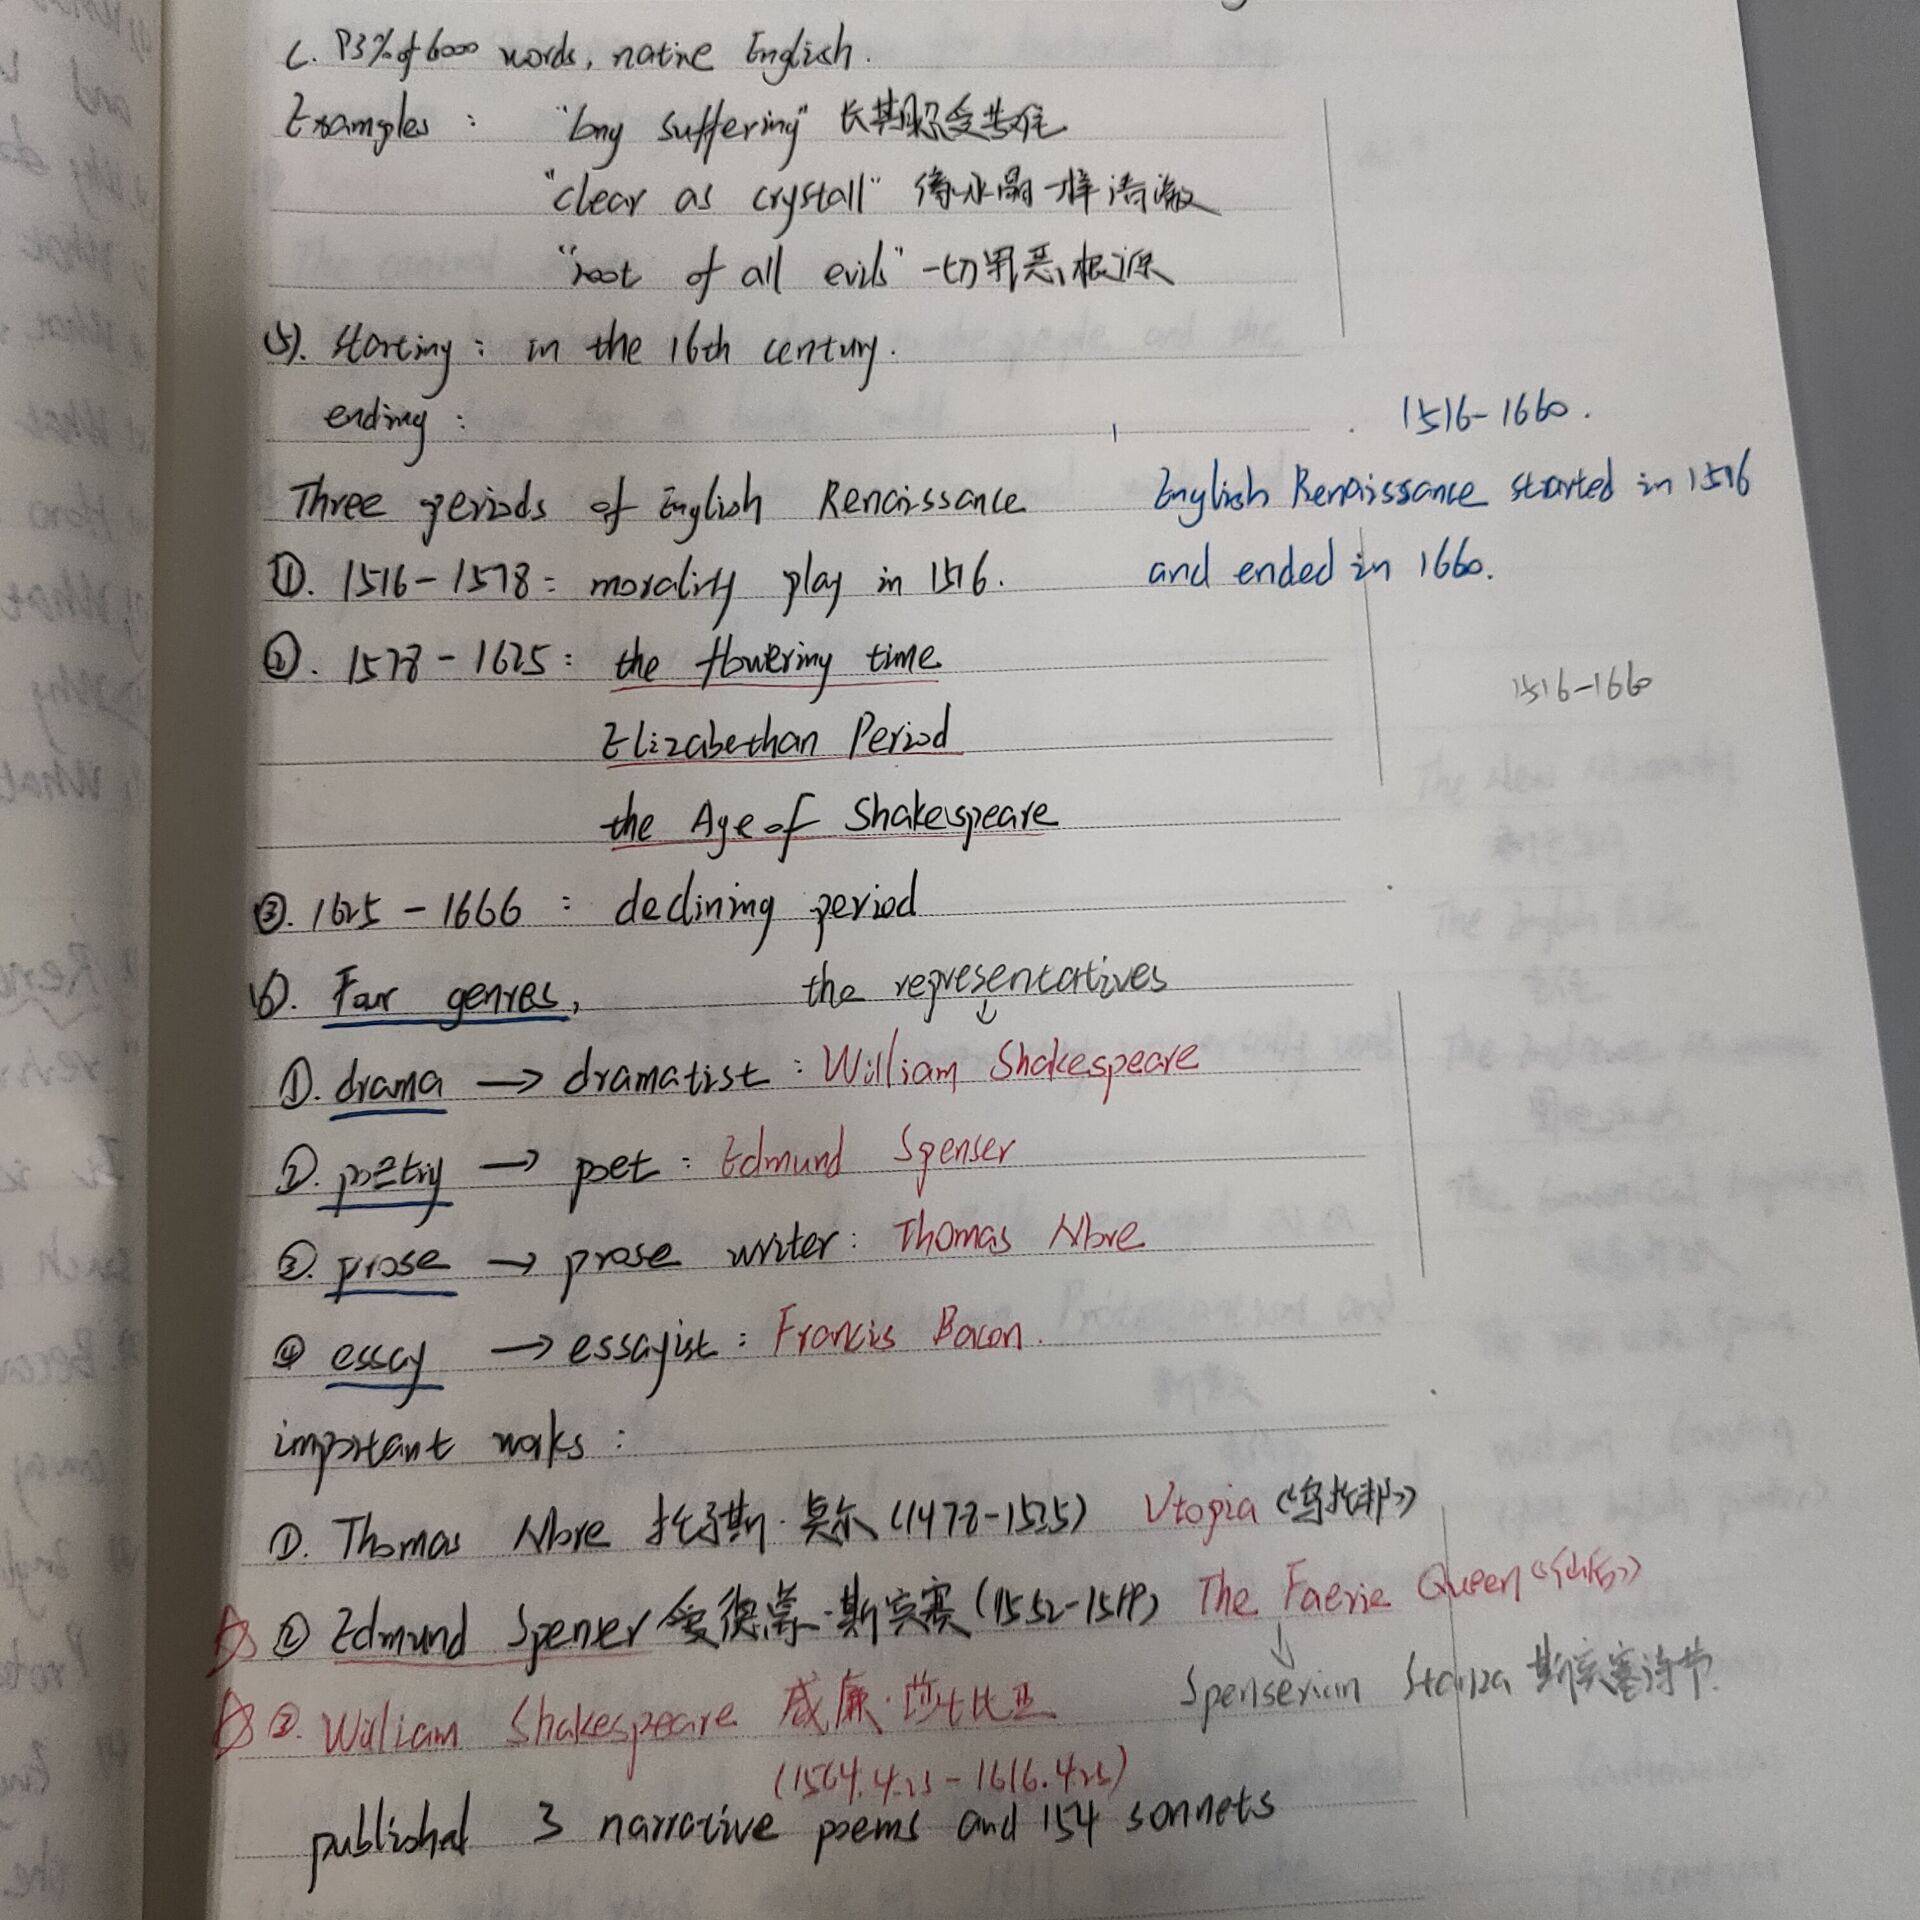 c. 93% of 6000 words, native English.
Examples: "long suffering" 长期忍受苦难
"clear as crystall" 像水晶一样清澈
"root of all evils" 一切罪恶根源
(5). starting: in the 16th century.
ending:
1516-1660.
Three periods of English Renaissance
English Renaissance started in 1516
and ended in 1660.
①. 1516-1578: morality play in 1516.
②. 1578-1625: the flowering time
1516-1660
Elizabethan Period
the Age of Shakespeare
③. 1625-1666: declining period
(6). Four genres, the representatives
①. drama → dramatist: William Shakespeare
②. poetry → poet: Edmund Spenser
③. prose → prose writer: Thomas More
④ essay → essayist: Francis Bacon.
important works:
①. Thomas More 托马斯·莫尔 (1478-1535) Utopia《乌托邦》
② Edmund Spenser 爱德蒙·斯宾塞 (1552-1599) The Faerie Queen《仙后》
Spenserian Stanza 斯宾塞诗节.
③. William Shakespeare 威廉·莎士比亚
(1564.4.23-1616.4.23)
published 3 narrative poems and 154 sonnets